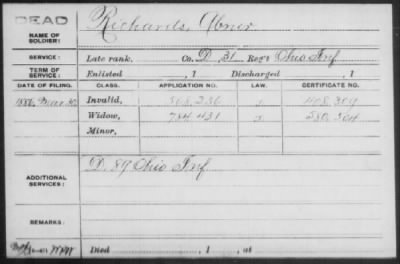 DEAD
NAME OF SOLDIER: Richards, Abner
SERVICE: Late rank, Co. D, 31 Reg't Ohio Inf.
TERM OF SERVICE: Enlisted , 1 Discharged , 1
DATE OF FILING. CLASS. APPLICATION NO. LAW. CERTIFICATE NO.
Invalid, 408.309
Widow, 784.431
Minor,
ADDITIONAL SERVICES: D. 89 Ohio Inf
REMARKS:
Died , 1 , at